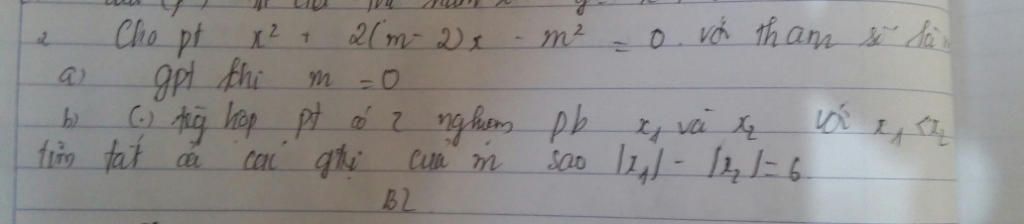 2 Cho pt x² + 2(m-2)x - m² = 0. với tham số
a) gpt khi m = 0
b) (.) tg hợp pt có 2 nghiệm pb x₁ và x₂ với x₁ < x₂
tìm tất cả các gtrị của m sao |x₁| - |x₂| = 6
B2